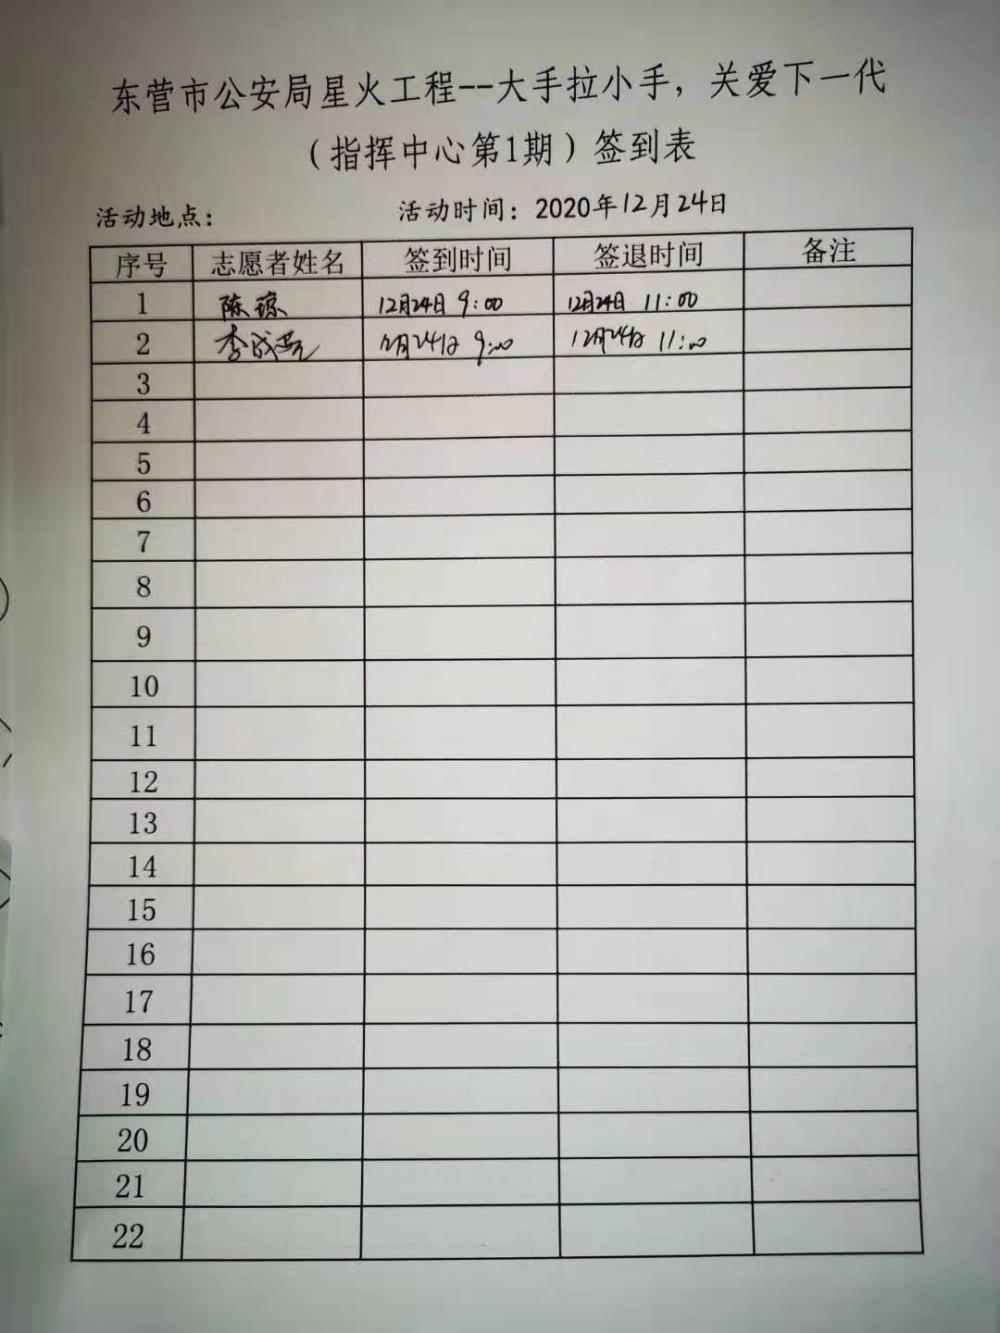 东营市公安局星火工程--大手拉小手，关爱下一代
（指挥中心第1期）签到表
活动地点： 活动时间：2020年12月24日
序号 志愿者姓名 签到时间 签退时间 备注
1 陈琼 12月24日 9:00 12月24日 11:00
2 李成 12月24日 9:00 12月24日 11:00
3
4
5
6
7
8
9
10
11
12
13
14
15
16
17
18
19
20
21
22